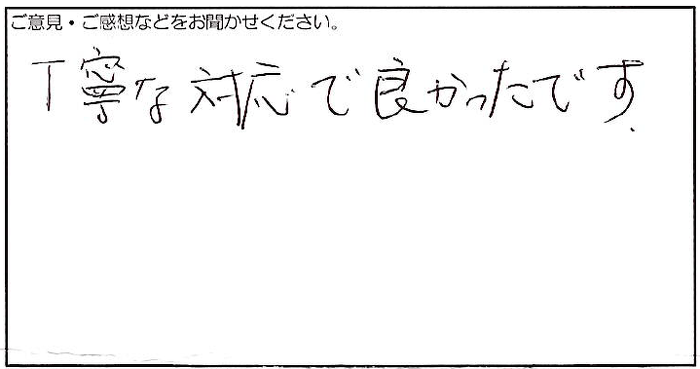 ご意見・ご感想などをお聞かせください。
丁寧な対応で良かったです.